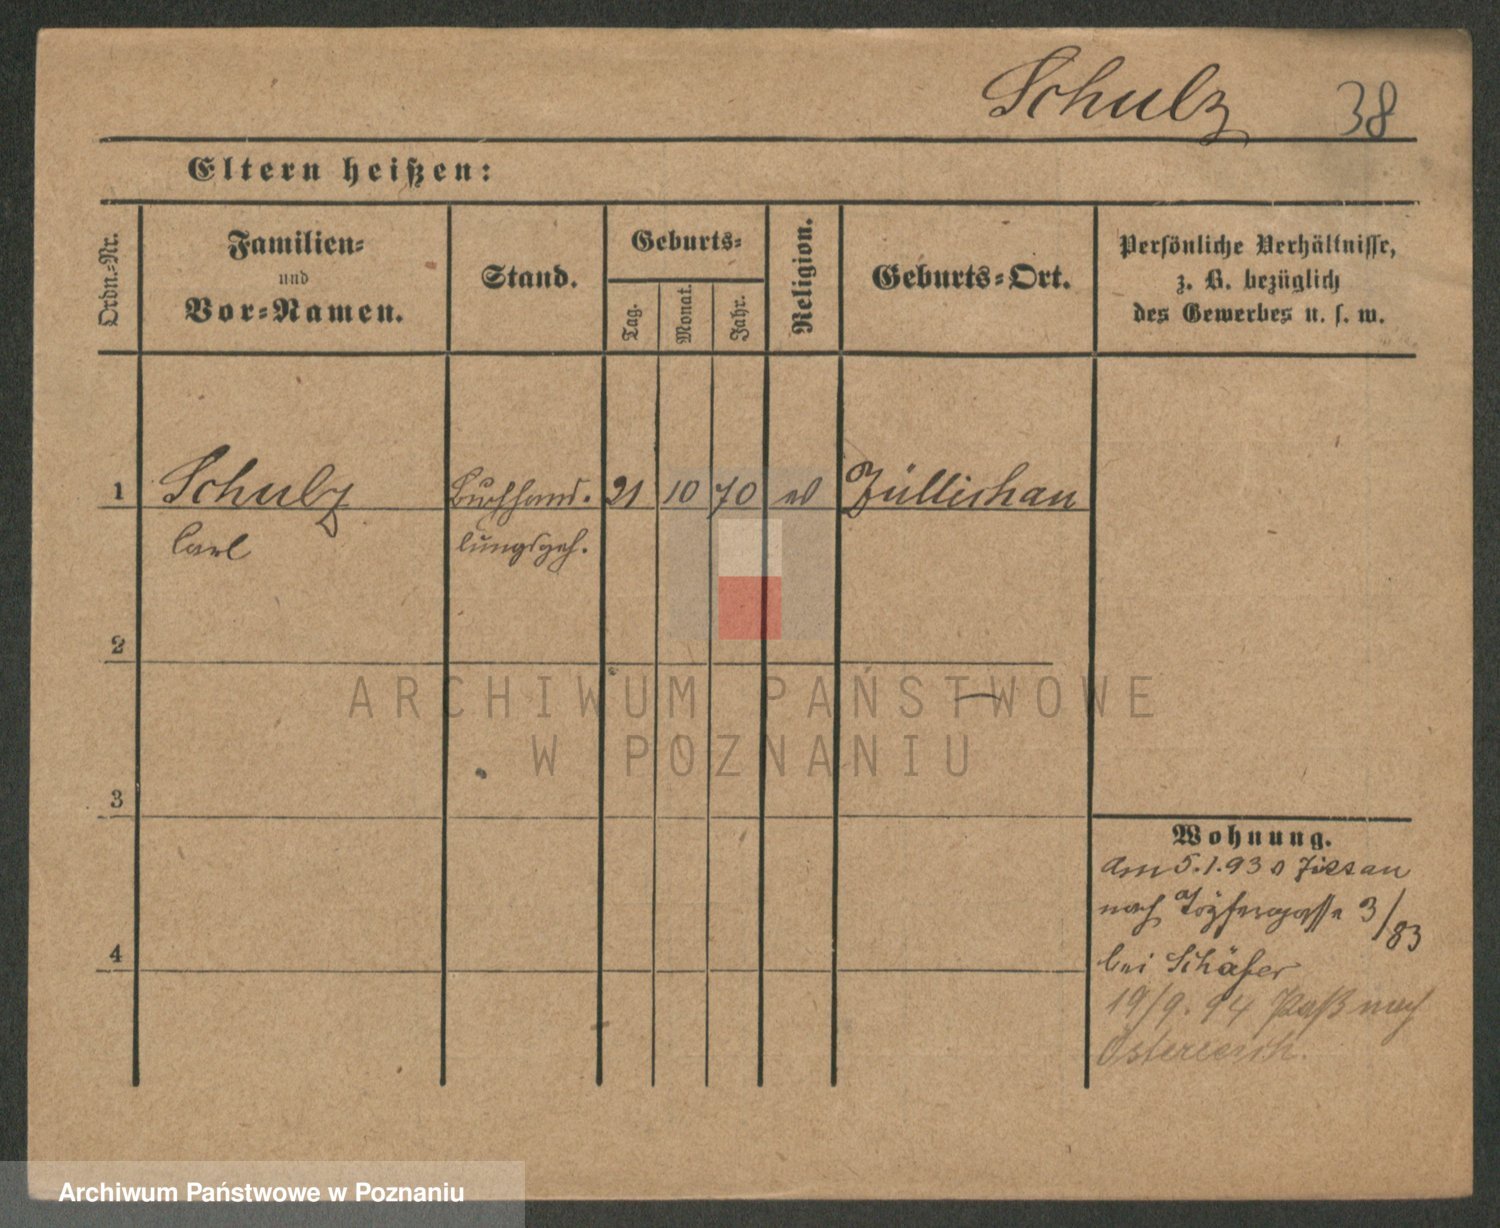 Schulz 38
Eltern heißen:
Ordn.-Nr.
Familien-
und
Vor-Namen.
Stand.
Geburts-
Tag.
Monat.
Jahr.
Religion.
Geburts-Ort.
Persönliche Verhältnisse,
z. B. bezüglich
des Gewerbes u. s. w.
1 Schulz Buchhand- 21 10 70 ev Züllichau
Carl lungsgeh.
2
ARCHIWUM PAŃSTWOWE
W POZNANIU
3
Wohnung.
Am 5.1.93
nach 3/83
bei Schäfer
4
19/9. 94 Paß nach
Österreich.
Archiwum Państwowe w Poznaniu